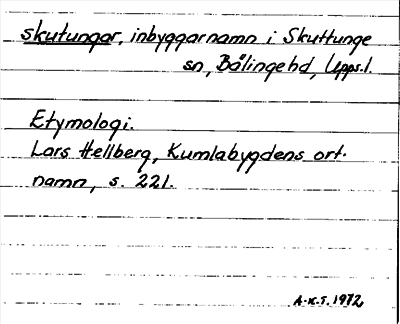 skutungar, inbyggarnamn i Skuttunge
sn, Bälingehd, Upps.l.
Etymologi.
Lars Hellberg, Kumlabygdens ort-
namn, s. 221.
A-K.T. 1972